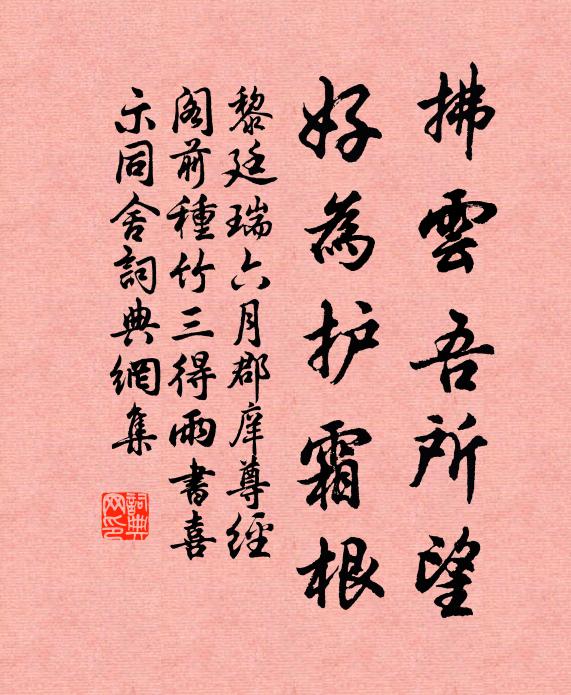 拂雲吾所望
好為护霜根
黎廷瑞六月郡庠尊經
閣前種竹三得雨書喜
示同舍詞典網集
詞典网印